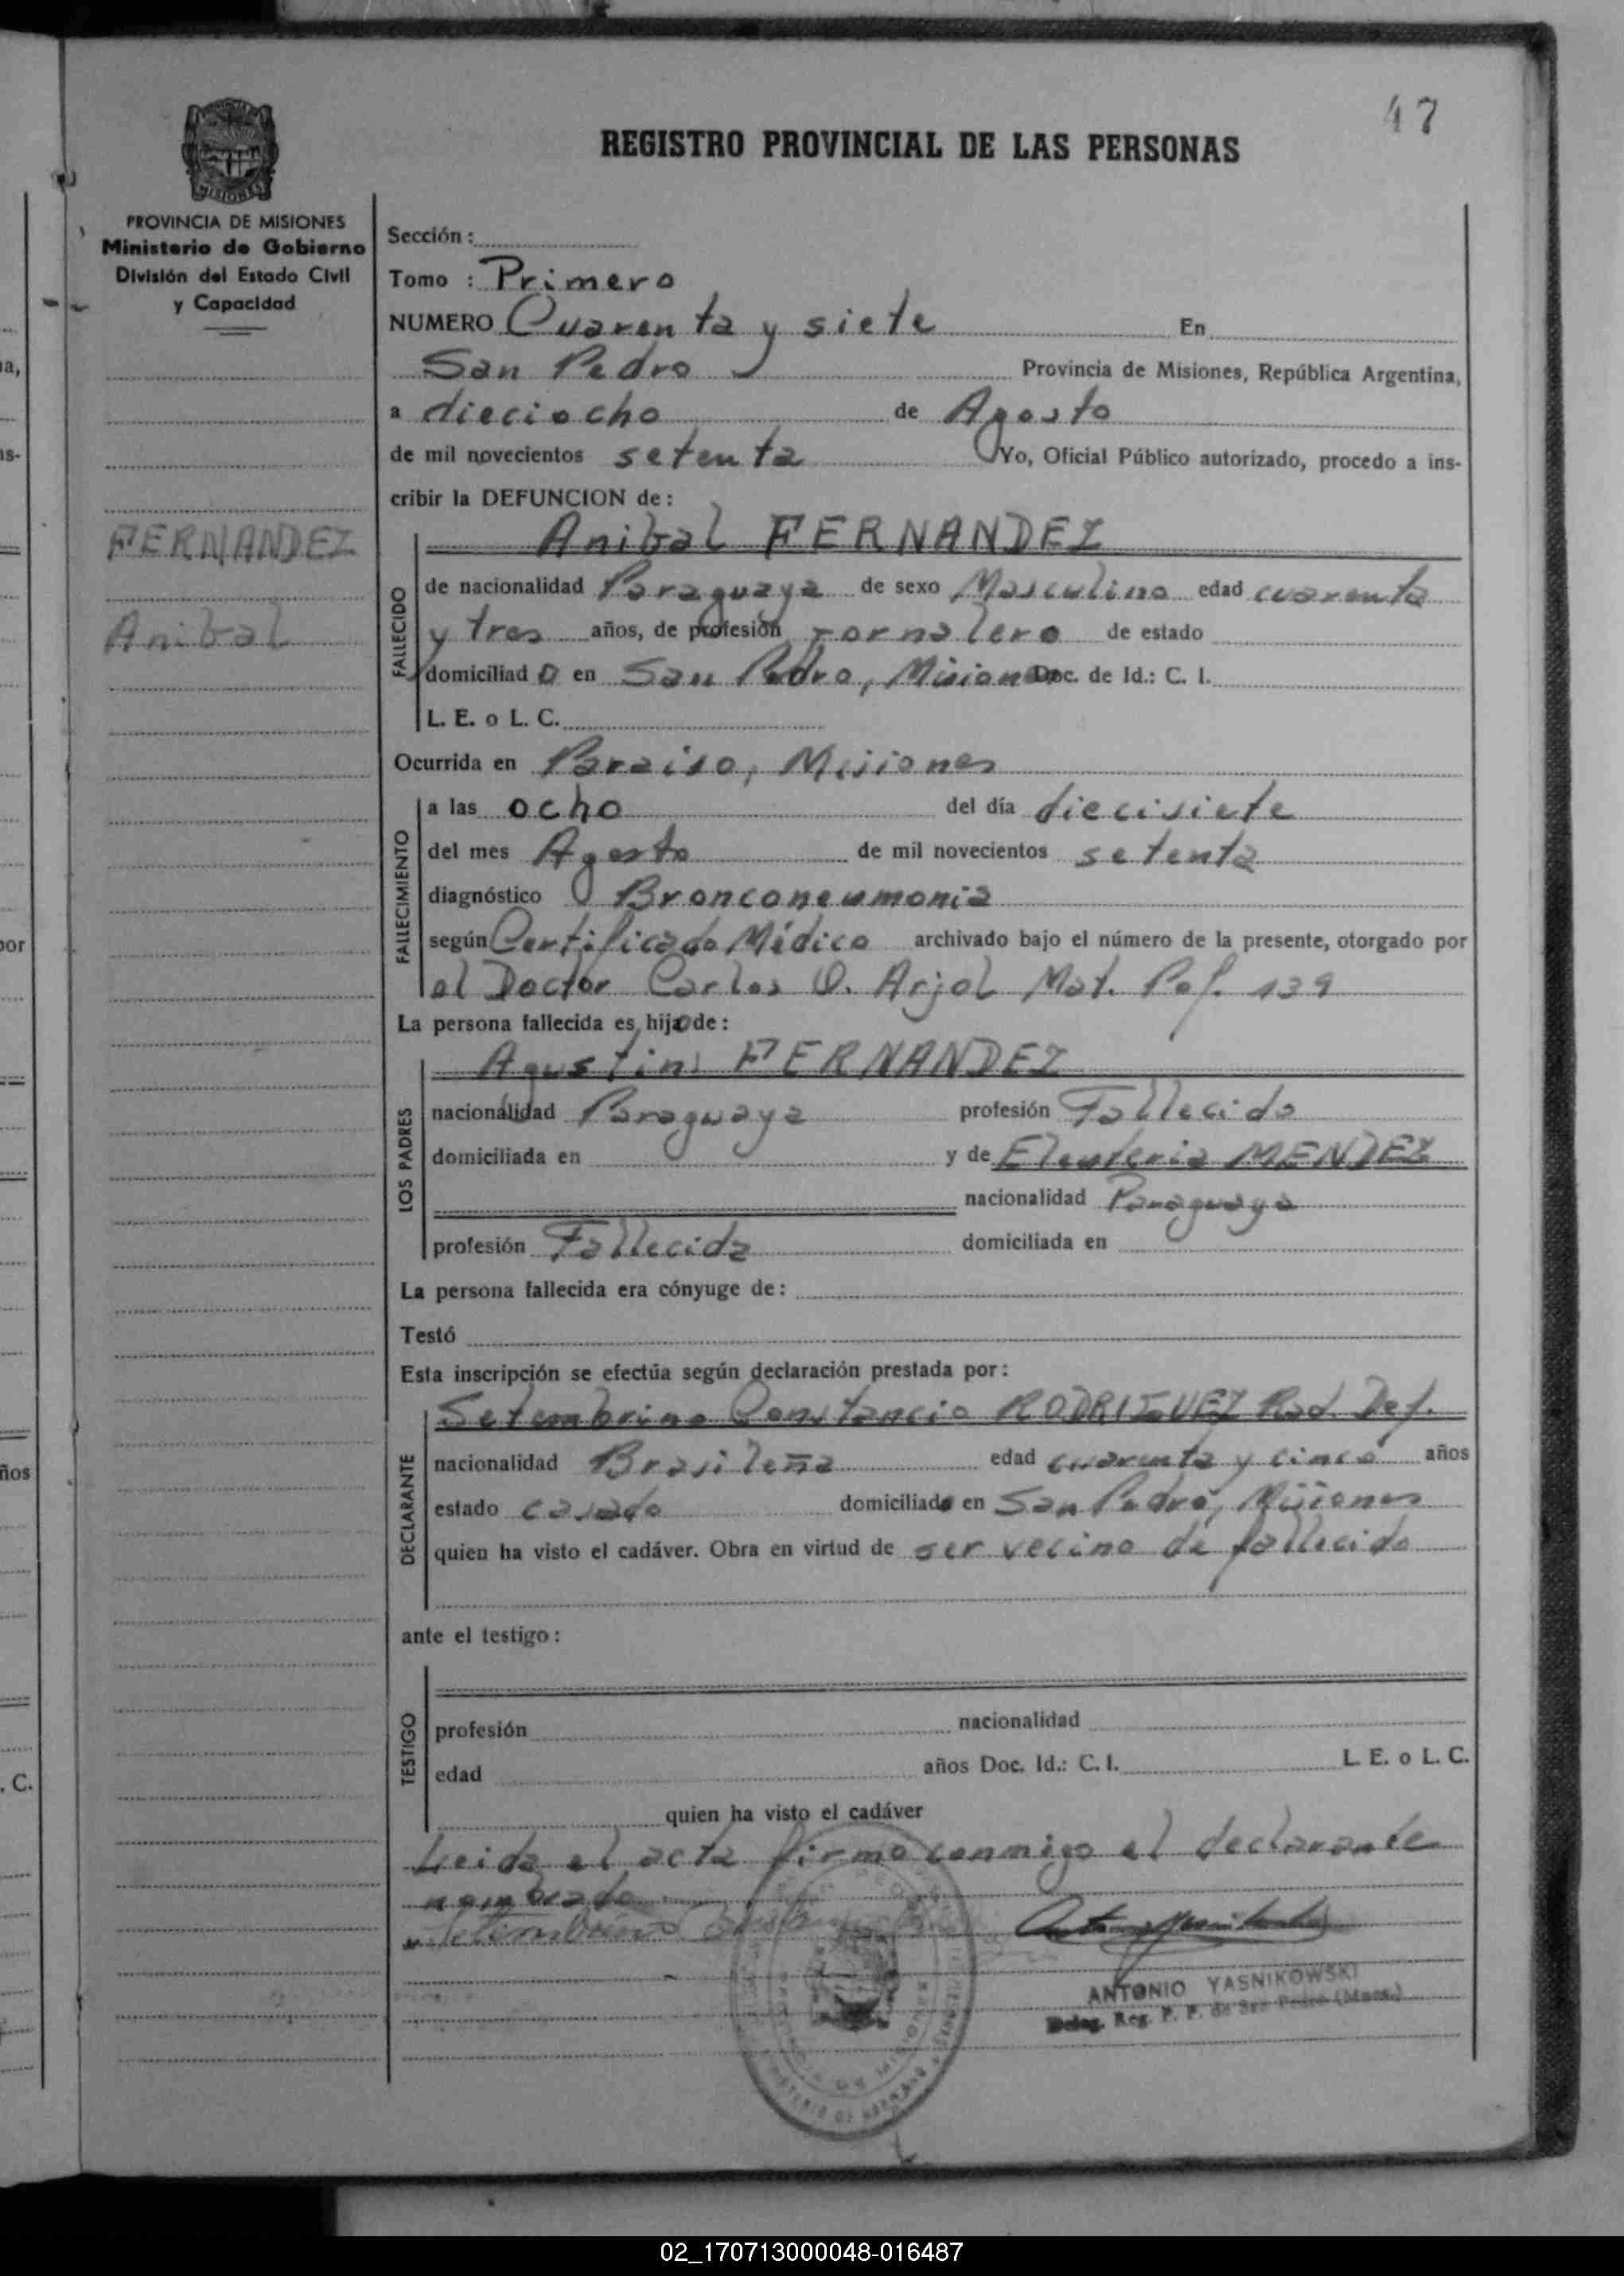 47
REGISTRO PROVINCIAL DE LAS PERSONAS
MISIONES
PROVINCIA DE MISIONES
Ministerio de Gobierno
División del Estado Civil
y Capacidad
FERNANDEZ
Anibal
Sección :
Tomo : Primero
NUMERO Cuarenta y siete En
San Pedro Provincia de Misiones, República Argentina,
a dieciocho de Agosto
de mil novecientos setenta Yo, Oficial Público autorizado, procedo a ins-
cribir la DEFUNCION de :
Anibal FERNANDEZ
FALLECIDO
de nacionalidad Paraguaya de sexo Masculino edad cuarenta
y tres años, de profesión Jornalero de estado
domiciliad o en San Pedro, Misiones Doc. de Id.: C. I.
L. E. o L. C.
Ocurrida en Paraiso, Misiones
FALLECIMIENTO
a las ocho del día diecisiete
del mes Agosto de mil novecientos setenta
diagnóstico Bronconeumonia
según Certificado Médico archivado bajo el número de la presente, otorgado por
el Doctor Carlos O. Arjol Mat. Pof. 139
La persona fallecida es hijo de :
LOS PADRES
Agustin FERNANDEZ
nacionalidad Paraguaya profesión Fallecido
domiciliada en y de Eleuteria MENDEZ
nacionalidad Paraguaya
profesión Fallecida domiciliada en
La persona fallecida era cónyuge de :
Testó
Esta inscripción se efectúa según declaración prestada por :
DECLARANTE
Setembrino Constancio RODRIGUEZ Rad. Def.
nacionalidad Brasileña edad cuarenta y cinco años
estado casado domiciliado en San Pedro, Misiones
quien ha visto el cadáver. Obra en virtud de ser vecino de fallecido
ante el testigo :
TESTIGO
profesión nacionalidad
edad años Doc. Id.: C. I. L. E. o L. C.
quien ha visto el cadáver
Leida el acta firma conmigo el declarante
nombrado
Setembrino
ANTONIO YASNIKOWSKI
Deleg. Reg. P. P. de San Pedro (Mnes.)
a,
s-
por
ños
. C.
02_170713000048-016487